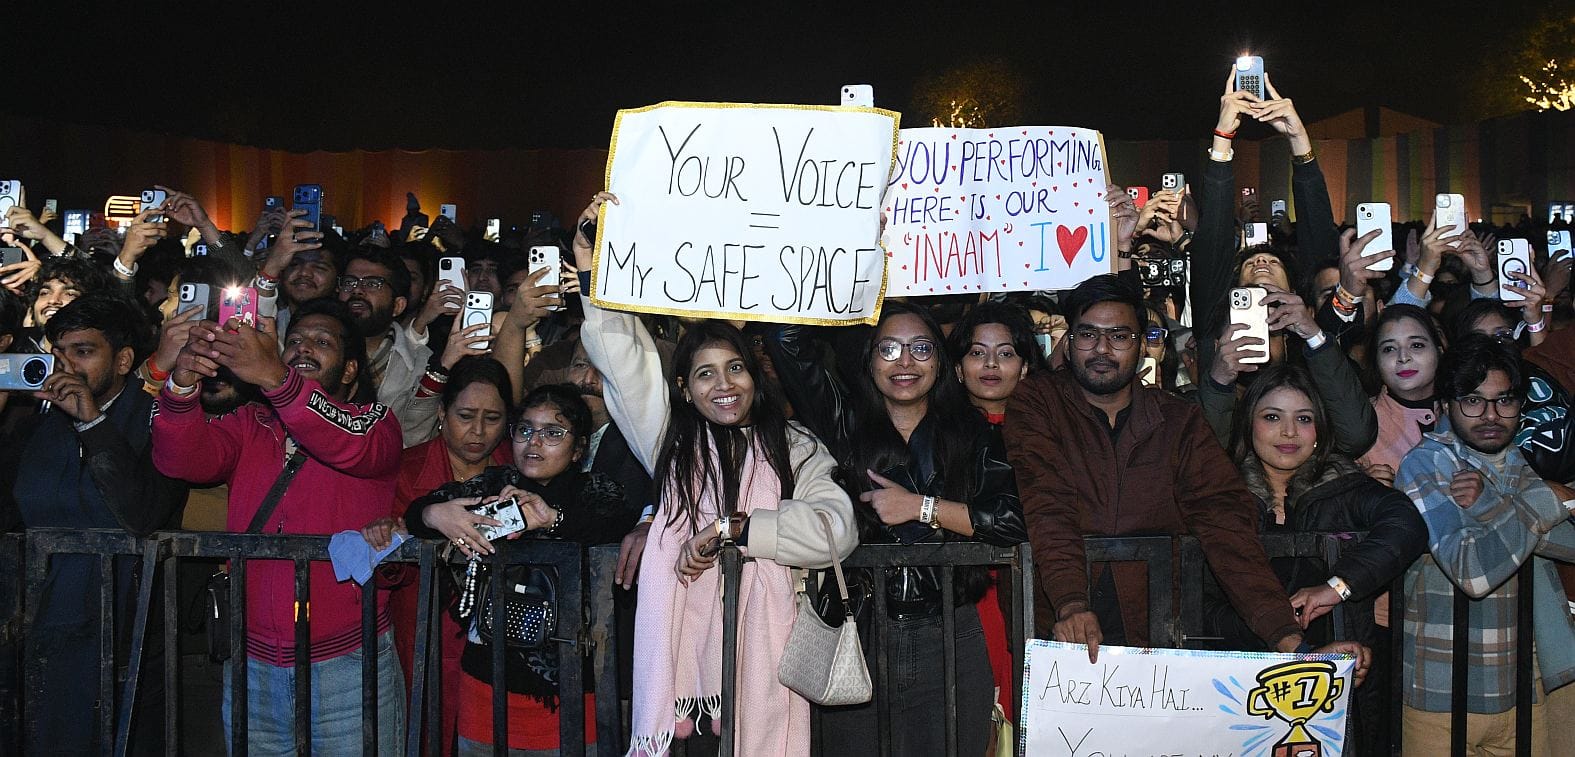 YOUR VOICE
=
MY SAFE SPACE
YOU PERFORMING
HERE IS OUR
"INAAM" I ♥ U
ARZ KIYA HAI...
YOU ARE MY
#1